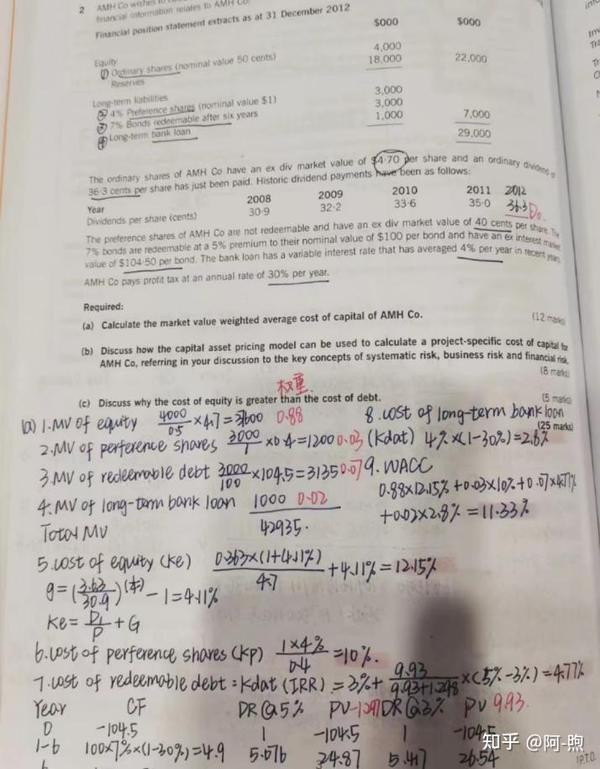 2 AMH Co wishes to
financial information relates to AMH Co.
Financial position statement extracts as at 31 December 2012
$000 $000
Equity
① Ordinary shares (nominal value 50 cents) 4,000
Reserves 18,000 22,000
Long-term liabilities
② 4% Preference shares (nominal value $1) 3,000
③ 7% Bonds redeemable after six years 3,000
④ Long-term bank loan 1,000 7,000
29,000
The ordinary shares of AMH Co have an ex div market value of $4·70 per share and an ordinary dividend of
36·3 cents per share has just been paid. Historic dividend payments have been as follows:
Year 2008 2009 2010 2011 2012
Dividends per share (cents) 30·9 32·2 33·6 35·0 36.3 D0
The preference shares of AMH Co are not redeemable and have an ex div market value of 40 cents per share. The
7% bonds are redeemable at a 5% premium to their nominal value of $100 per bond and have an ex interest market
value of $104·50 per bond. The bank loan has a variable interest rate that has averaged 4% per year in recent years.
AMH Co pays profit tax at an annual rate of 30% per year.
Required:
(a) Calculate the market value weighted average cost of capital of AMH Co. (12 marks)
(b) Discuss how the capital asset pricing model can be used to calculate a project-specific cost of capital for
AMH Co, referring in your discussion to the key concepts of systematic risk, business risk and financial risk.
(8 marks)
权重
(c) Discuss why the cost of equity is greater than the cost of debt. (5 marks)
(25 marks)
(a) 1. MV of equity 4000/0.5 ×4.7=37600 0.88
2. MV of perference shares 3000/1 ×0.4=1200 0.03
3. MV of redeemable debt 3000/100 ×104.5=3135 0.07
4. MV of long-tom bank loan 1000 0.02
Total MV 42935.
5. cost of equity (Ke) 0.363×(1+4.11%)/4.7 +4.11%=12.15%
g= -1=4.11%
Ke= D1/P +G
6. cost of perference shares (Kp) 1×4%/0.4 =10%.
7. cost of redeemable debt=Kdat (IRR) = 3%+ 9.93/9.93+1.298 ×(5%-3%)=4.77%
8. cost of long-term bank loan
(Kdat) 4%×(1-30%)=2.8%
9. WACC
0.88×12.15%+0.03×10%+0.07×4.77%
+0.02×2.8%=11.33%
Year CF DR@5% PV DR@3% PV 9.93.
0 -104.5 1 -104.5 1 -104.5
1-6 100×7%×(1-30%)=4.9 5.076 24.87 5.417 26.54
知乎 @阿-煦
P.T.O.